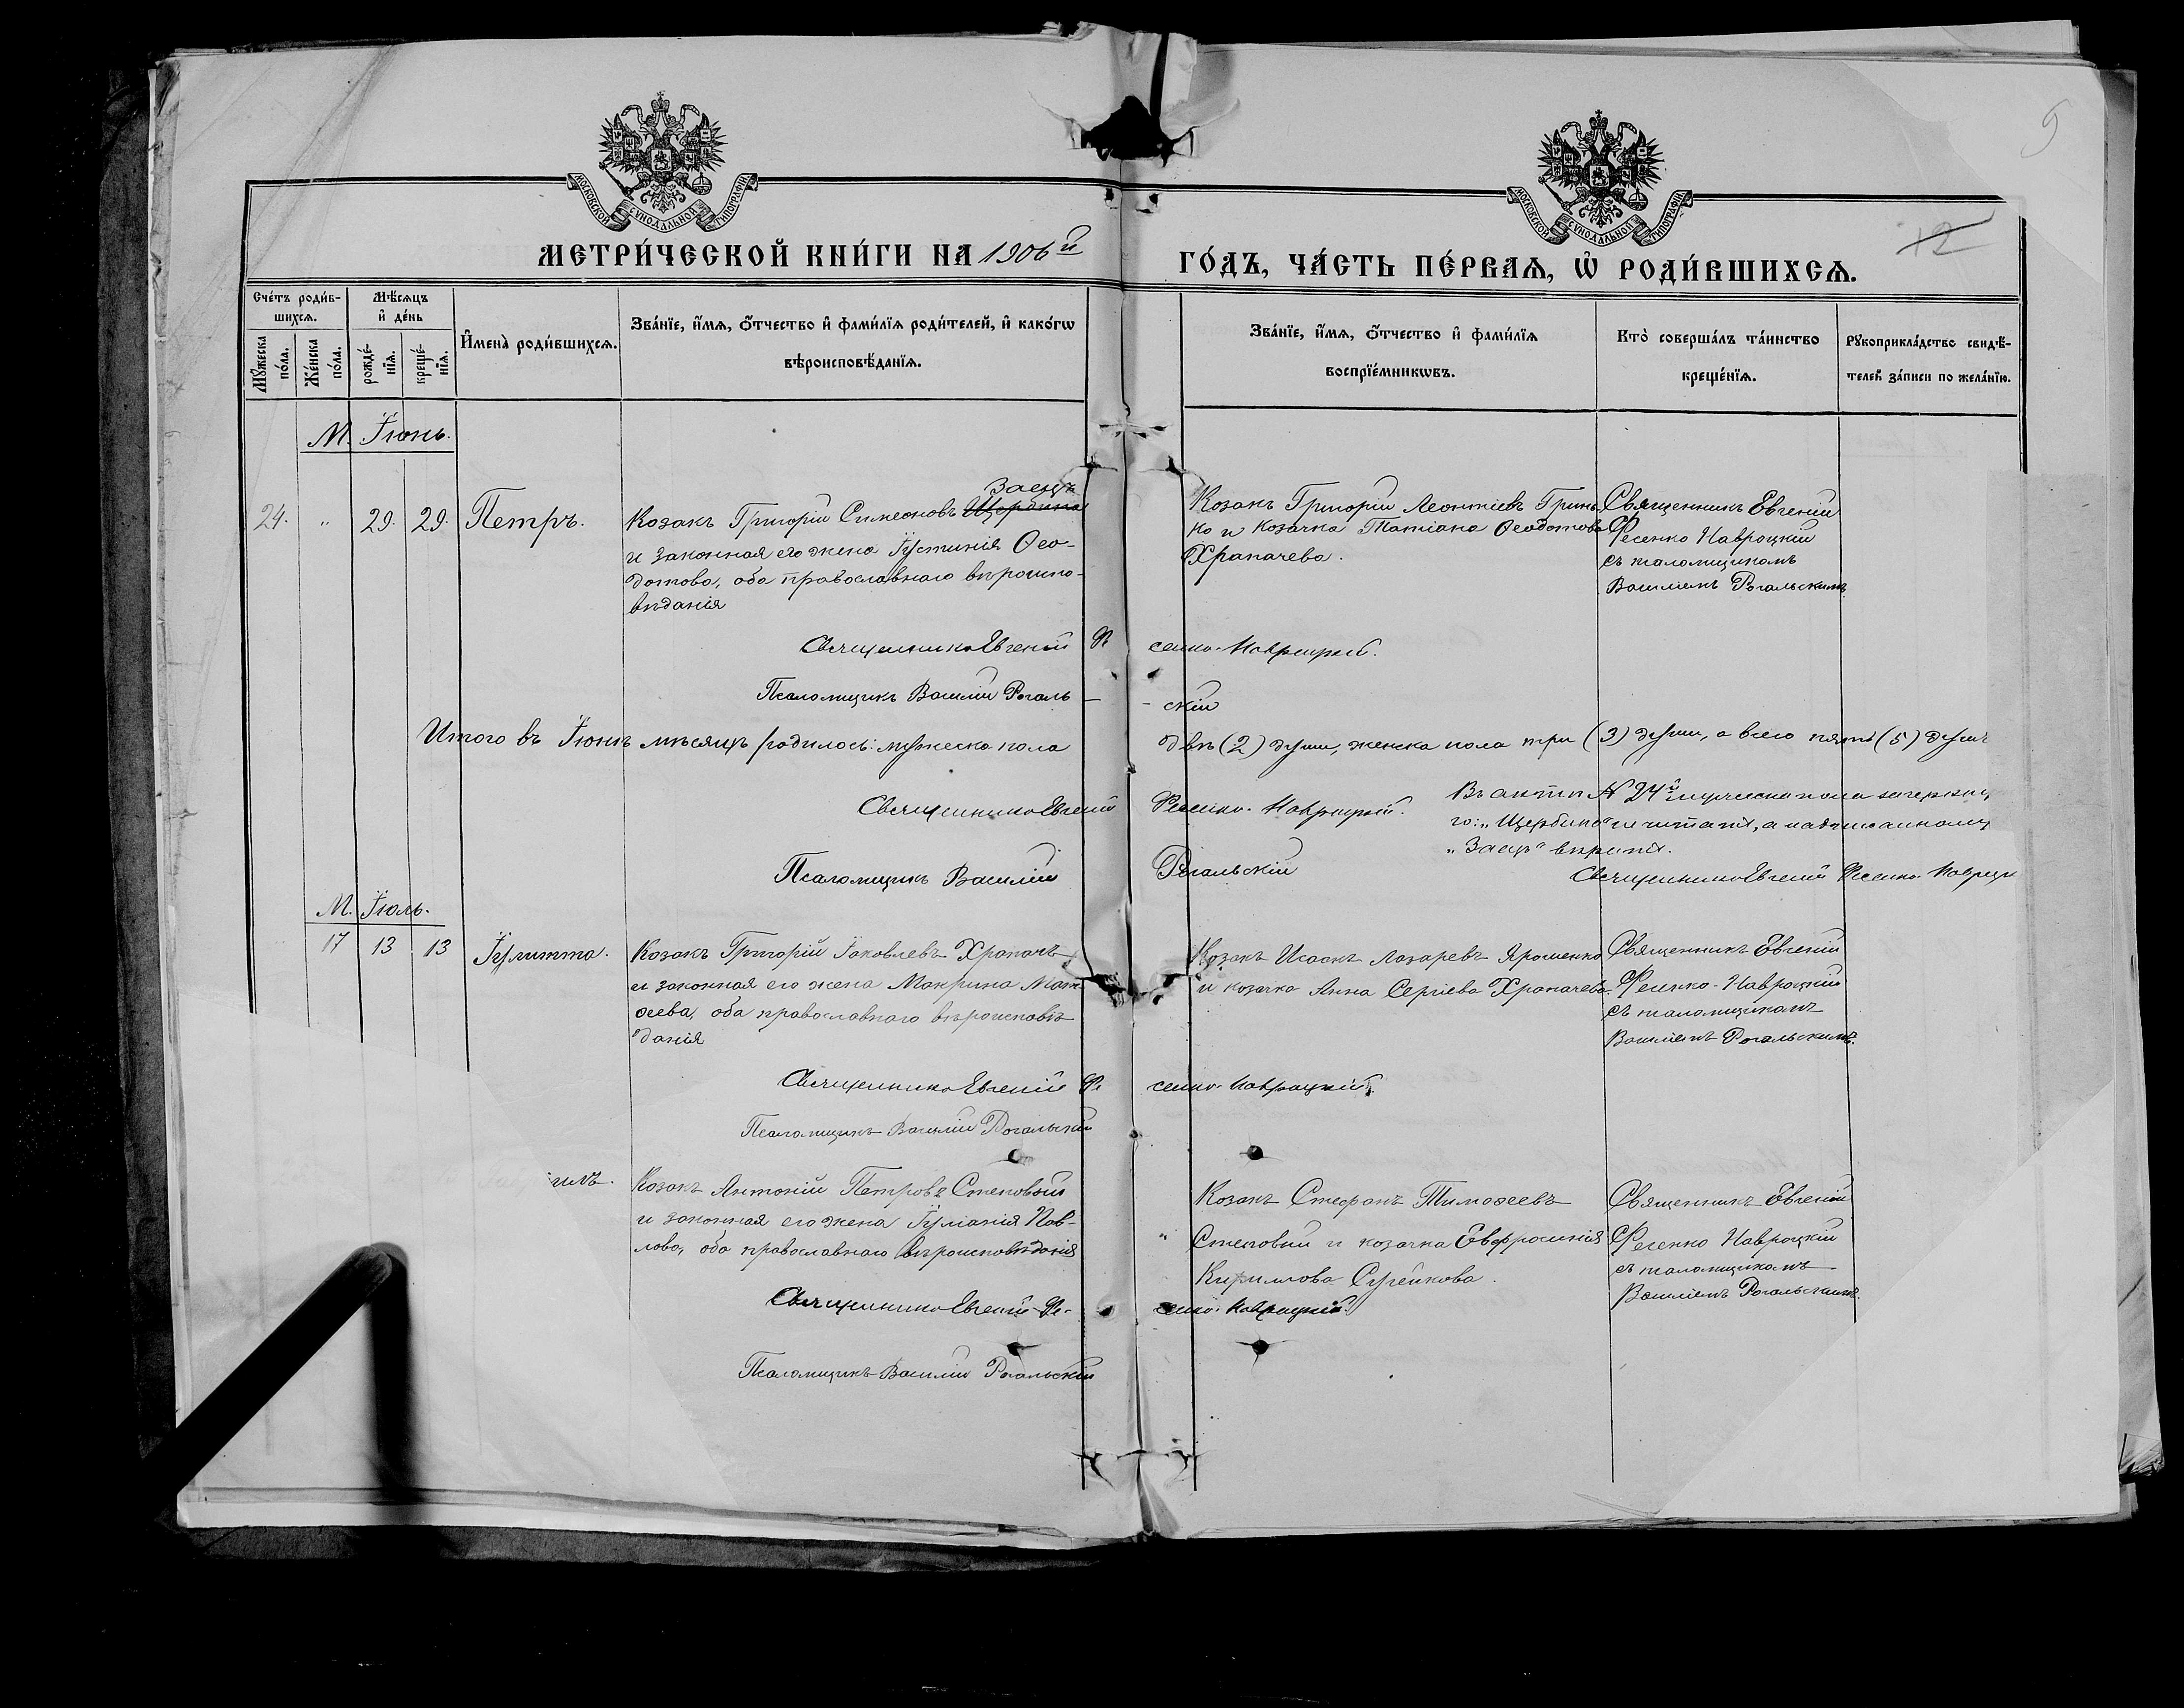 МОСКОВСКОЙ СУНОДАЛЬНОЙ ТИПОГРАФІИ
МОСКОВСКОЙ СУНОДАЛЬНОЙ ТИПОГРАФІИ
9
12
МЕТРИ́ЧЕСКОЙ КНИ́ГИ НА 1906й
ГО́ДЪ, ЧА́СТЬ ПЕ́РВАѦ, Ѡ҆ РОДИ́ВШИХСѦ.
Сче́тъ роди́в-
шихсѧ.
Мѣ́сѧцъ
и҆ де́нь
Мꙋ́жеска
по́ла.
Же́нска
по́ла.
рожде́-
нїѧ.
креще́-
нїѧ.
И҆мена̀ роди́вшихсѧ.
Зва́нїе, и҆́мѧ, ѻ҆́тчество и҆ фами́лїѧ роди́телей, и҆ како́гѡ
вѣроисповѣ́данїѧ.
Зва́нїе, и҆́мѧ, ѻ҆́тчество и҆ фами́лїѧ
воспрїе́мникѡвъ.
Кто̀ соверша́лъ та́инство
креще́нїѧ.
Рꙋкоприкла́дство свидѣ́-
телей за́писи по жела́нїю.
М. Іюнь.
24. " 29. 29. Петръ.
Заецъ
Козакъ Григорій Симеоновъ Щербина
и законная его жена Іустинія Ѳео-
дотова, оба православнаго вѣроиспо-
вѣданія
Козакъ Григорій Леонтіевъ Гринь
ко и козачка Татіана Ѳеодотова
Храпачева.
Священникъ Евгеній
Фесенко Навроцкій
съ псаломщикомъ
Василіемъ Рогальскимъ.
Священникъ Евгеній Фе сенко-Навроцкій.
Псаломщикъ Василій Рогаль - - скій
Итого въ Іюнѣ мѣсяцѣ родилось: мужеска пола двѣ (2) души, женска пола три (3) души, а всего пять (5) душъ
Священникъ Евгеній Фесенко-Навроцкій.
Въ актѣ № 24й мужеска пола зачеркну
го: „Щербина" не читать, а надписанному
„Заецъ" вѣрить.
Псаломщикъ Василій Рогальскій
Священникъ Евгеній Фесенко Навроцк
М. Іюль.
17 13 13 Іулитта.
Козакъ Григорій Іаковлевъ Храпачъ
и законная его жена Макрина Мат-
ѳеева, оба православнаго вѣроисповѣ
данія
Козакъ Исаакъ Лазаревъ Ярошенко
и козачка Анна Сергіева Храпачева.
Священникъ Евгеній
Фесенко-Навроцкій
съ псаломщикомъ
Василіемъ Рогальскимъ.
Священникъ Евгеній Фе сенко-Навроцкій.
Псаломщикъ Василій Рогальскій
илъ.
Козакъ Антоній Петровъ Степовый
и законная его жена Іуліанія Пав-
лова, оба православнаго вѣроисповѣданія
Козакъ Стефанъ Тимоѳеевъ
" Степовый и козачка Евфросинія
Кириллова Сулейкова.
Священникъ Евгеній
Фесенко Навроцкій
съ псаломщикомъ
Василіемъ Рогальскимъ.
Священникъ Евгеній Фе- сенко-Навроцкій.
Псаломщикъ Василій Рогальскій